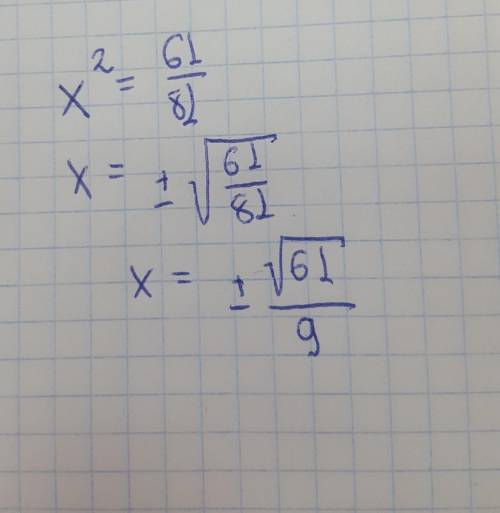 x² = 61/81
x = ± √(61/81)
x = ± √61/9